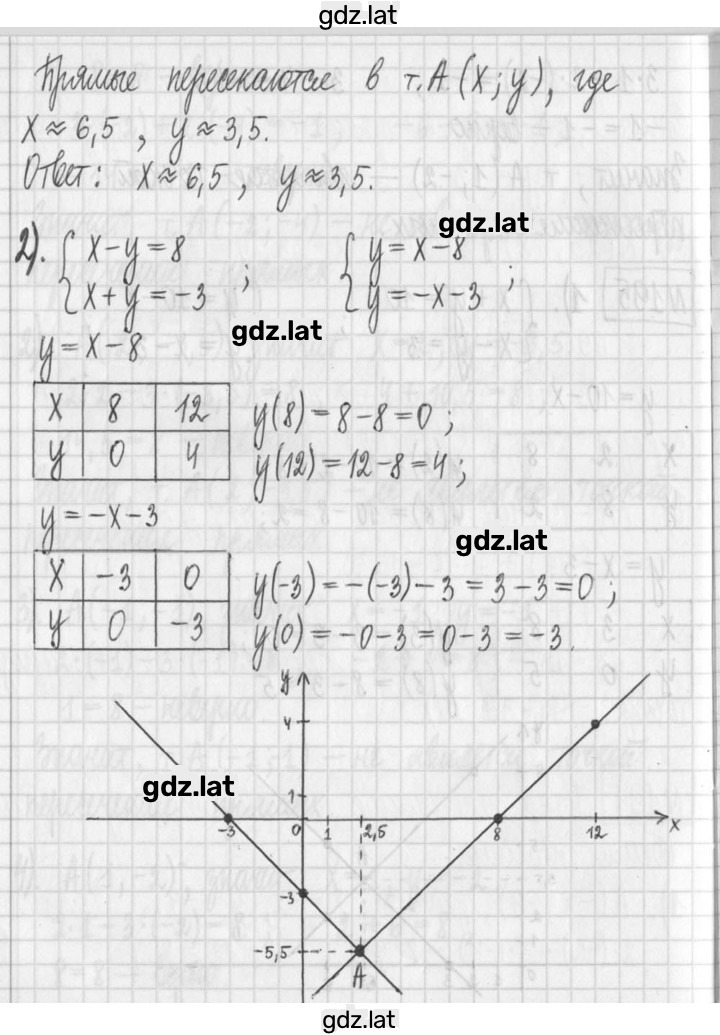 gdz.lat
Прямые пересекаются в т. A (x; y), где
x ≈ 6,5 , y ≈ 3,5.
Ответ: x ≈ 6,5 , y ≈ 3,5.
gdz.lat
2). { x − y = 8 { y = x − 8
x + y = −3 ; y = −x − 3 ;
gdz.lat
y = x − 8
x 8 12 y(8) = 8 − 8 = 0 ;
y 0 4 y(12) = 12 − 8 = 4 ;
y = −x − 3
gdz.lat
x −3 0 y(−3) = −(−3) − 3 = 3 − 3 = 0 ;
y 0 −3 y(0) = −0 − 3 = 0 − 3 = −3.
y
4
gdz.lat
1
−3 0 1 2,5 8 12 x
−3
−5,5
A
gdz.lat